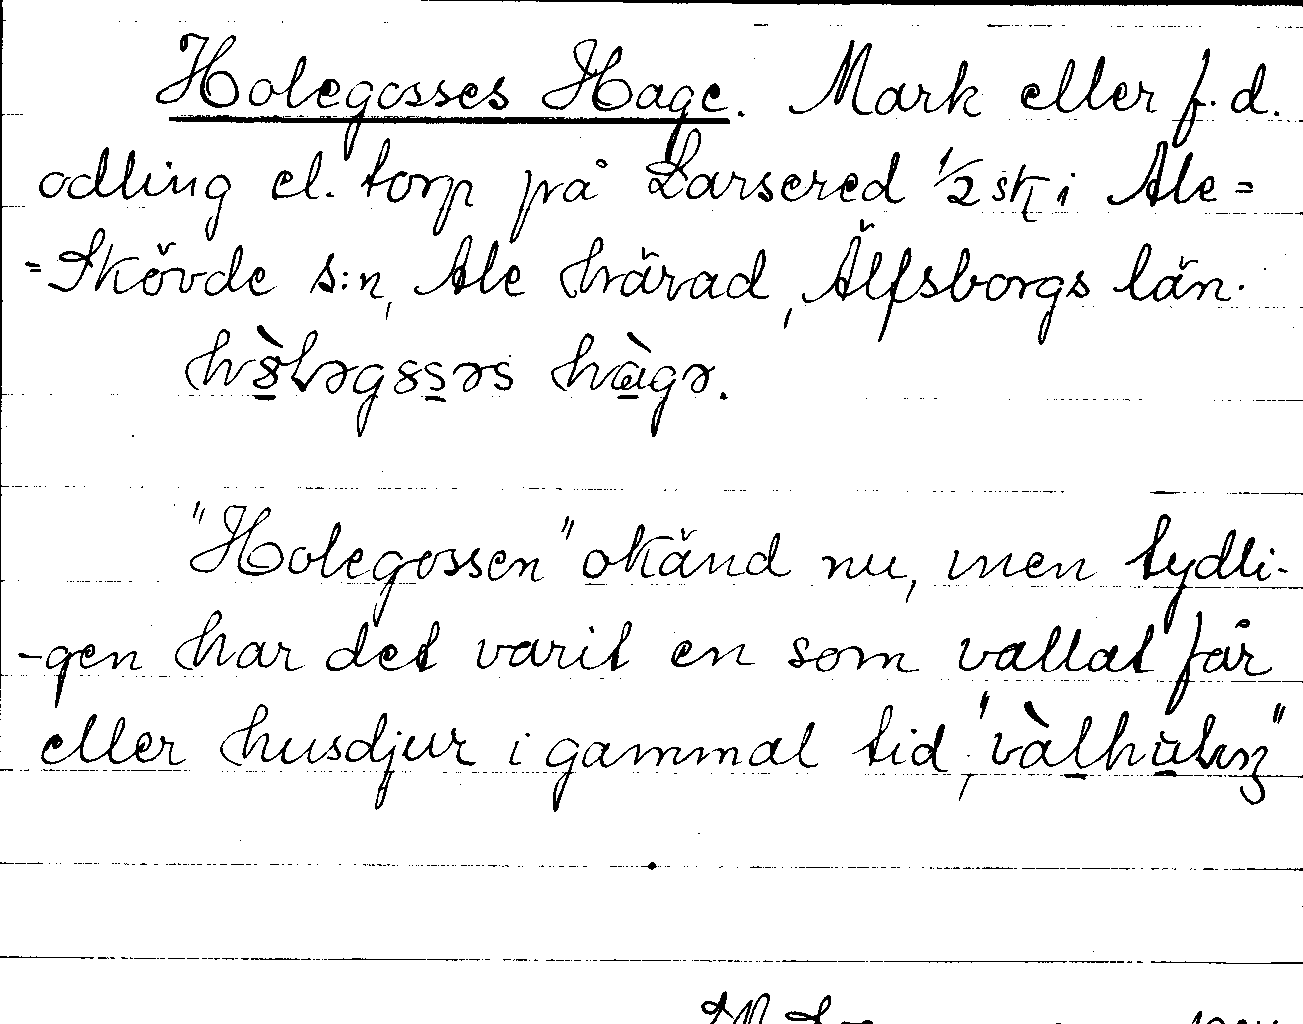 Holegosses Hage. Mark eller f.d.
odling el. torp på Larsered 1/2 sk i Ale=
=Skövde s:n, Ale härad, Älfsborgs län.
hage.
"Holegossen" okänd nu, men tydli-
-gen har det varit en som vallat får
eller husdjur i gammal tid,